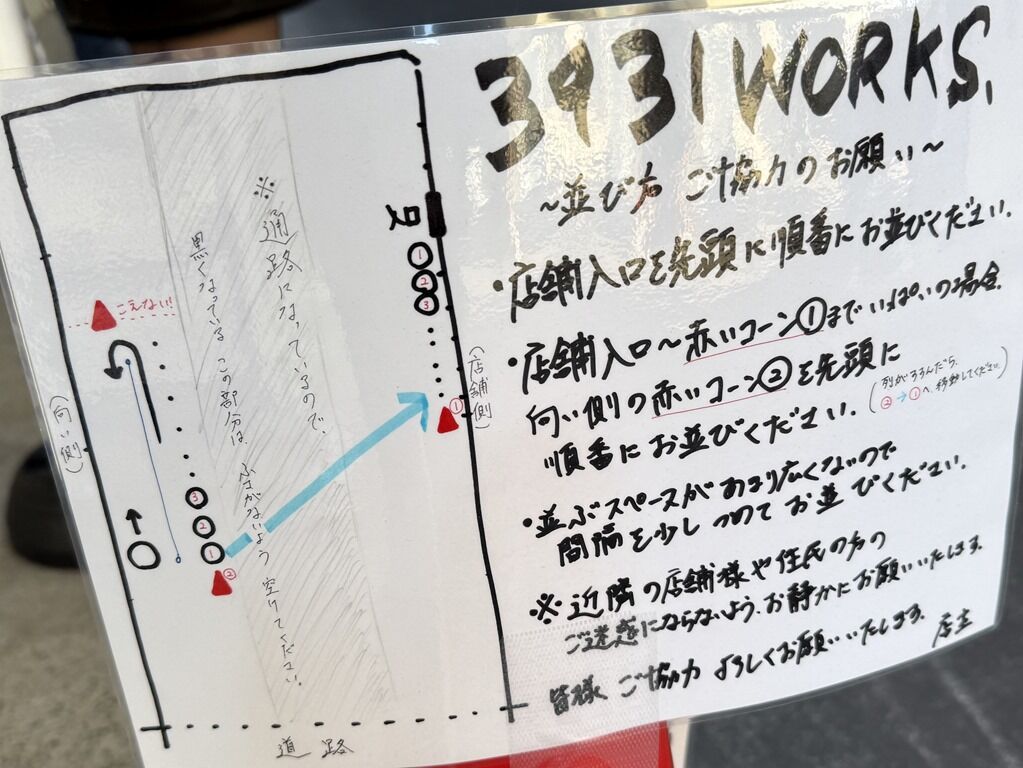 3931WORKS.
～並び方 ご協力のお願い～
・店舗入口を先頭に順番にお並びください.
・店舗入口～赤いコーン①までいっぱいの場合.
向い側の赤いコーン②を先頭に
順番にお並びください.
(列がすすんだら.
②→①へ移動してください)
・並ぶスペースがあまり広くないので
間隔を少しつめてお並びください.
※近隣の店舗様や住民の方の
ご迷惑にならないよう、お静かにお願いいたします.
皆様 ご協力 よろしくお願いいたします. 店主
※通路になっているので、
黒くなっている この部分は ふさがないよう 空けてください.
入口
①
②
③
①
(店舗側)
こえない!!
(向い側)
③
②
①
②
道路